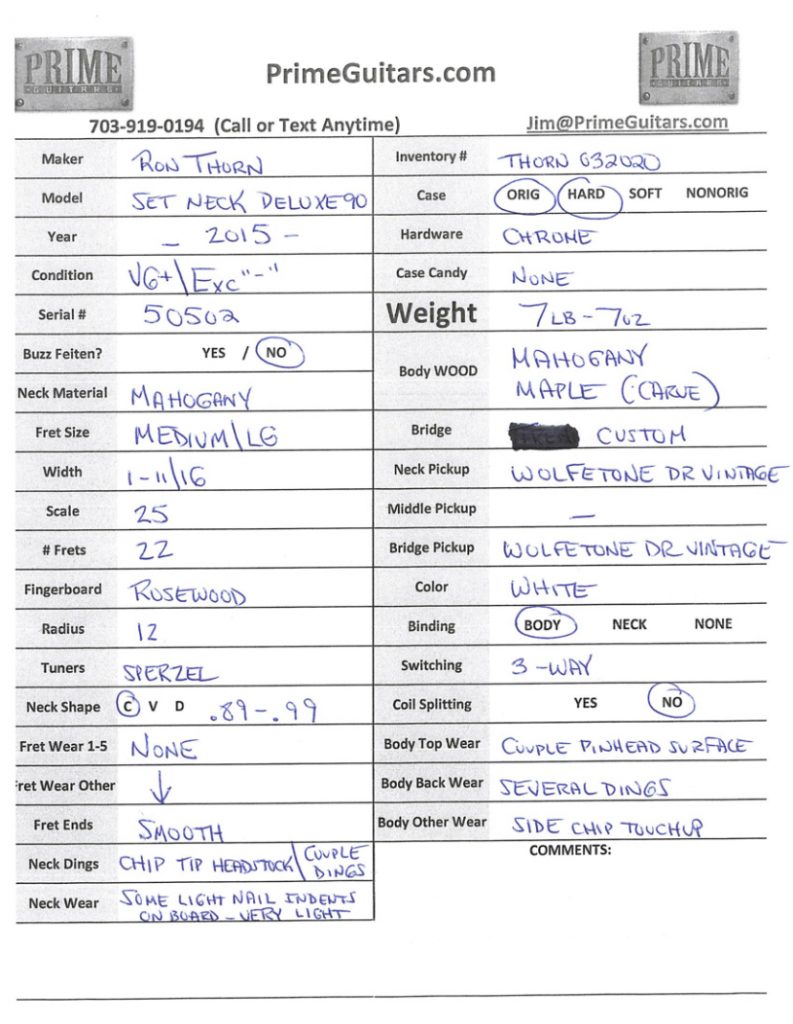 PRIME
GUITARS
PrimeGuitars.com
PRIME
GUITARS
703-919-0194 (Call or Text Anytime)
Jim@PrimeGuitars.com
Maker RON THORN
Model SET NECK DELUXE 90
Year – 2015 –
Condition VG+\EXC"-"
Serial # 50502
Buzz Feiten? YES / NO
Neck Material MAHOGANY
Fret Size MEDIUM/LG
Width 1-11/16
Scale 25
# Frets 22
Fingerboard ROSEWOOD
Radius 12
Tuners SPERZEL
Neck Shape C V D .89-.99
Fret Wear 1-5 NONE
Fret Wear Other ↓
Fret Ends SMOOTH
Neck Dings CHIP TIP HEADSTOCK/COUPLE
DINGS
Neck Wear SOME LIGHT NAIL INDENTS
ON BOARD – VERY LIGHT
Inventory # THORN 032020
Case ORIG HARD SOFT NONORIG
Hardware CHROME
Case Candy NONE
Weight 7LB – 7OZ
Body WOOD MAHOGANY
MAPLE (CARVE)
Bridge CUSTOM
Neck Pickup WOLFETONE DR VINTAGE
Middle Pickup —
Bridge Pickup WOLFETONE DR VINTAGE
Color WHITE
Binding BODY NECK NONE
Switching 3-WAY
Coil Splitting YES NO
Body Top Wear COUPLE PINHEAD SURFACE
Body Back Wear SEVERAL DINGS
Body Other Wear SIDE CHIP TOUCHUP
COMMENTS: